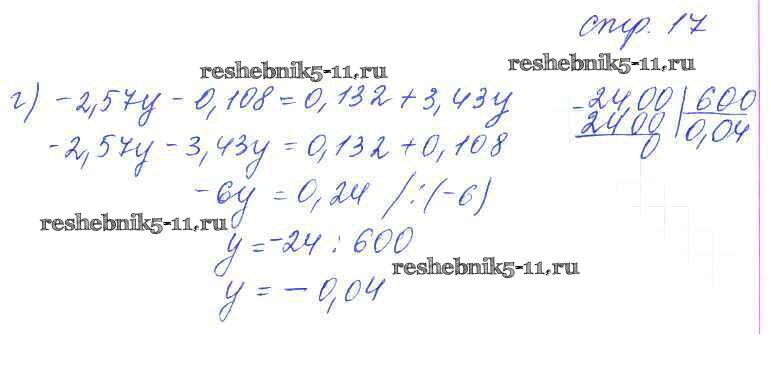 стр. 17
reshebnik5-11.ru
reshebnik5-11.ru
г) -2,57y - 0,108 = 0,132 + 3,43y
-2,57y - 3,43y = 0,132 + 0,108
-6y = 0,24 /:(-6)
reshebnik5-11.ru
y = -24 : 600
reshebnik5-11.ru
y = - 0,04
-24,00 | 600
2400 | 0,04
0